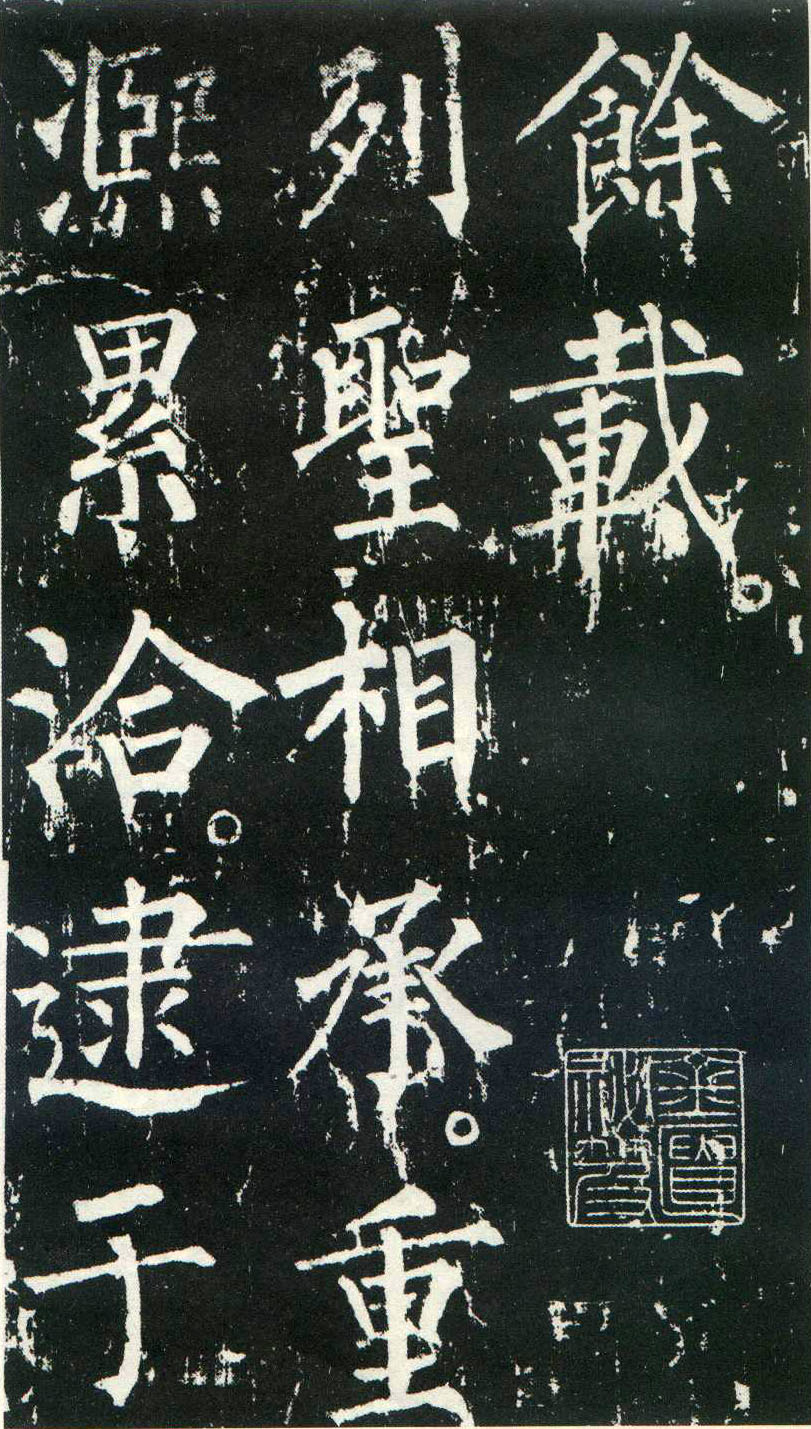 餘載。
列聖相承。重
凞累洽。逮于